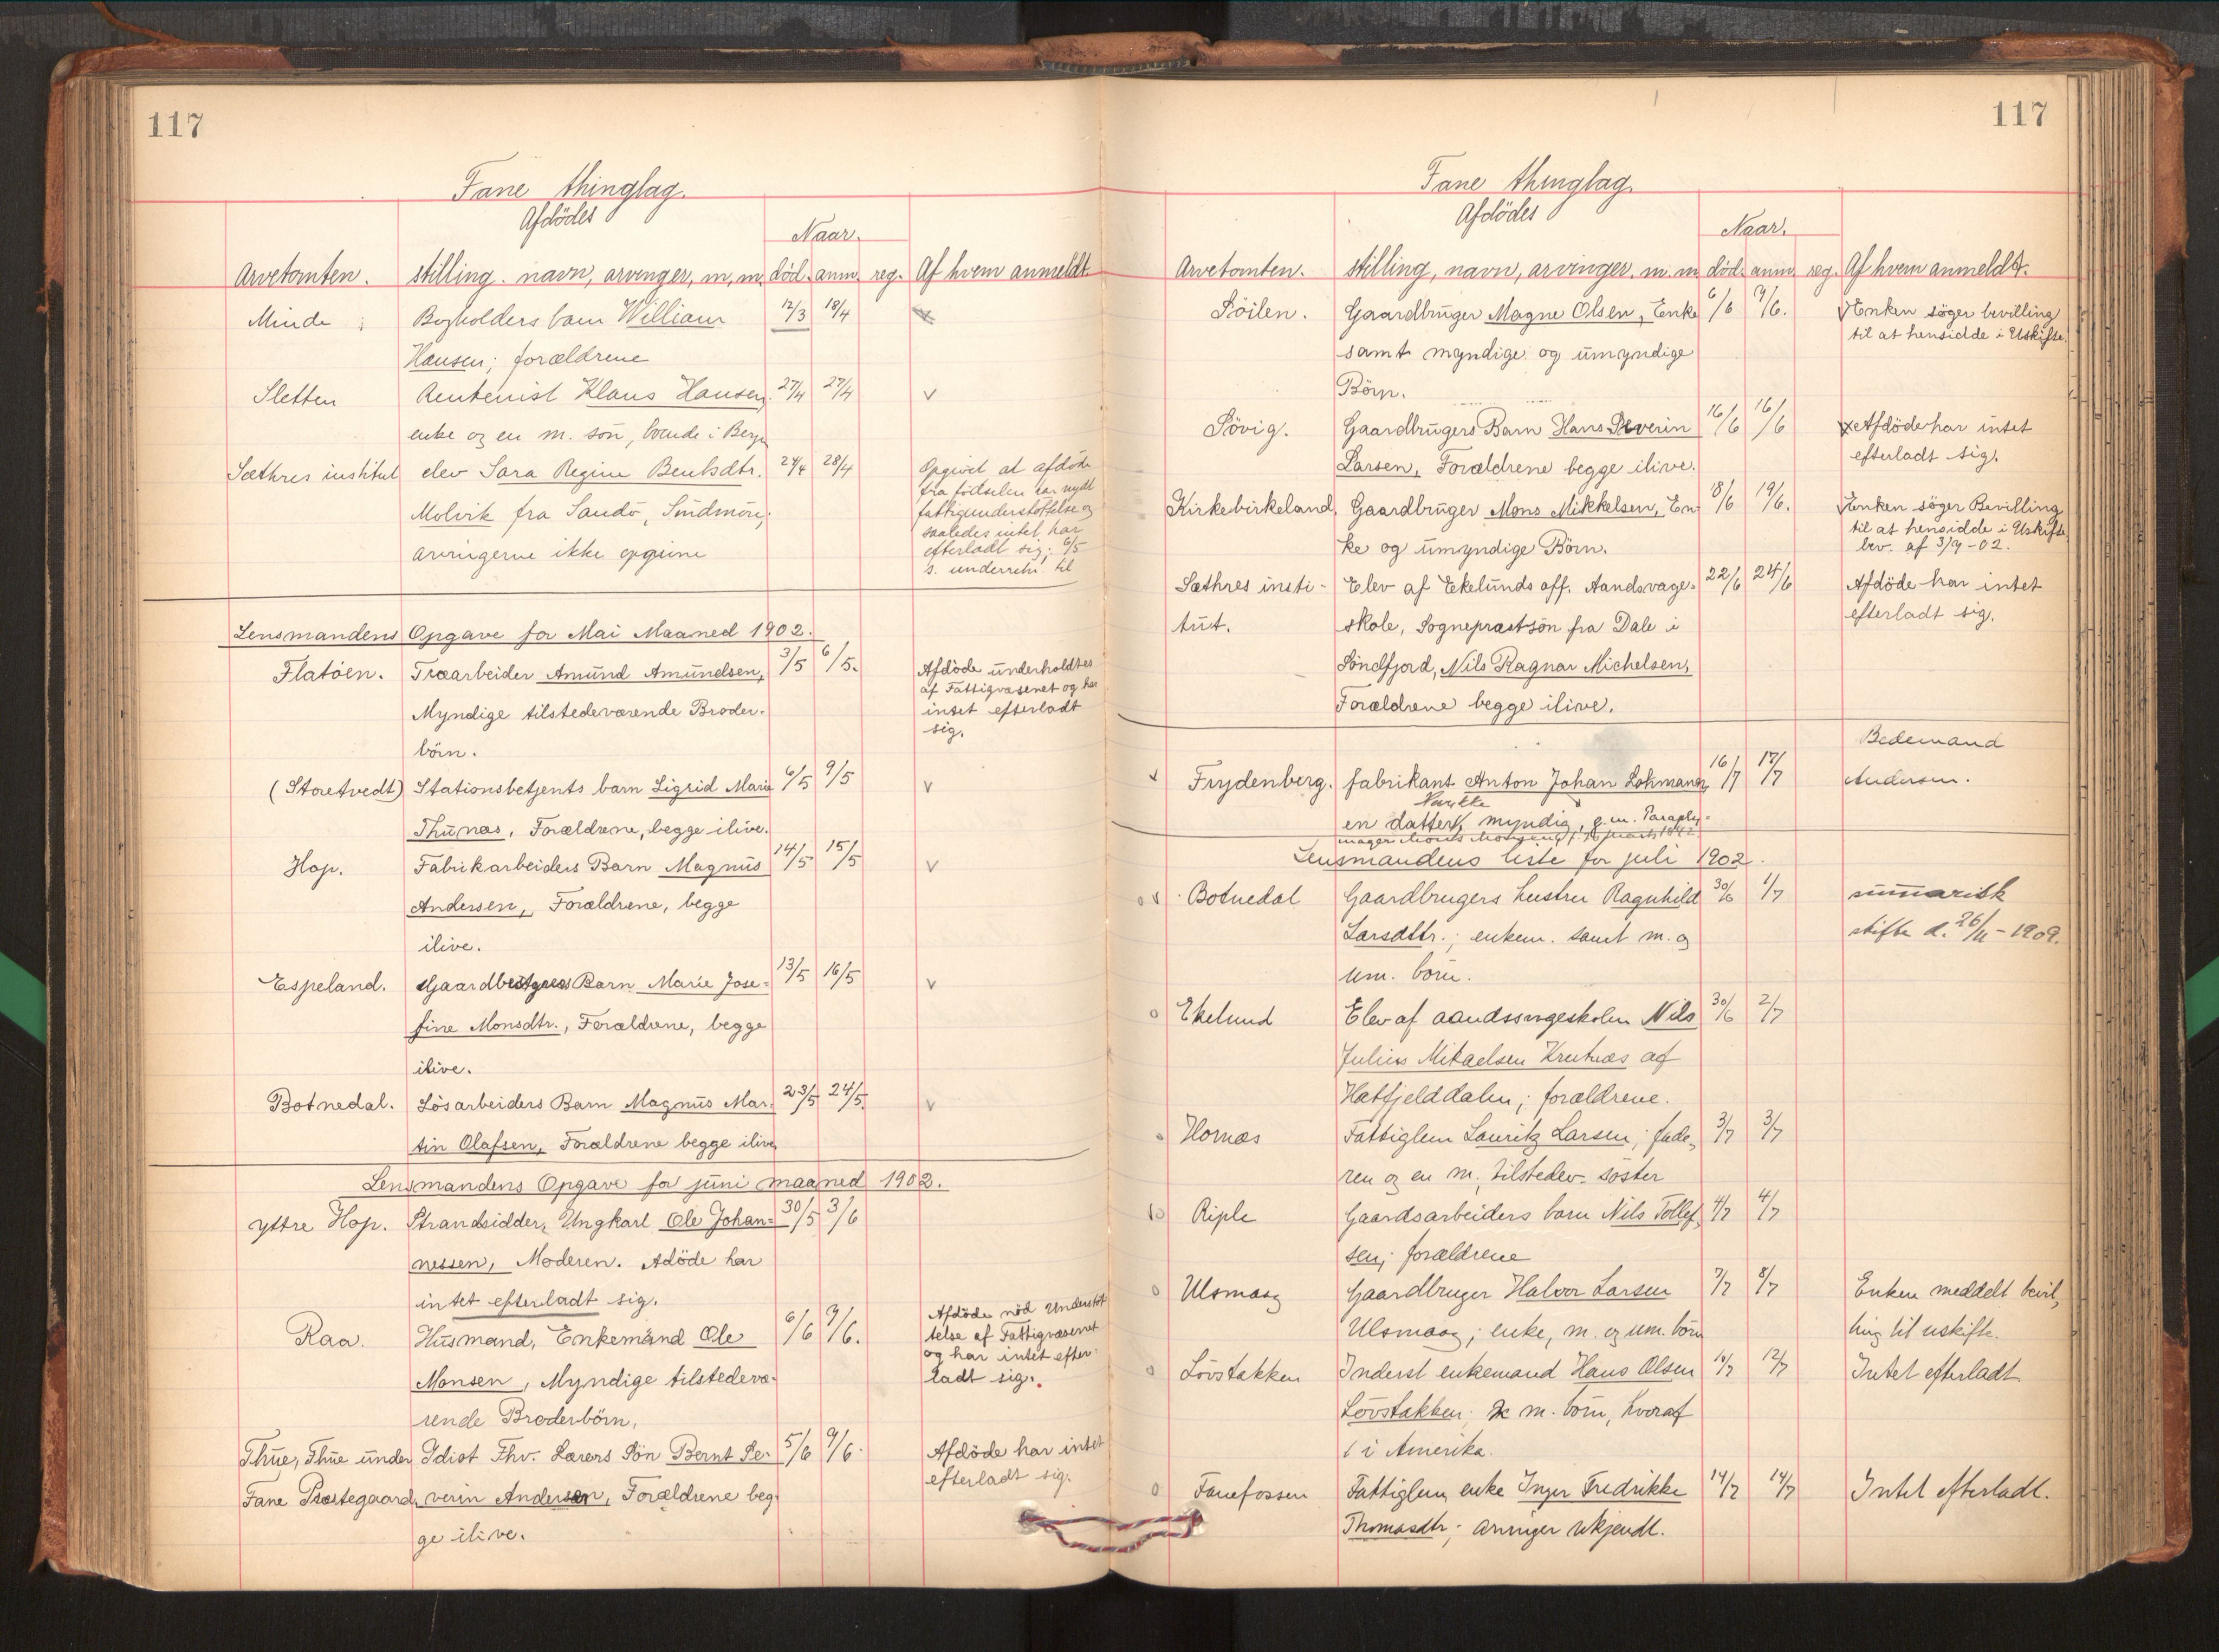 117
Fane thinglag.
Afdödes
Naar.
Arvetomten. stilling. navn, arvinger, m, m. död. anm. reg. Af hvem anmeldt
Minde ; Bogholders barn William 12/3 18/4
Hansen; forældrene
Sletten Rentenist Klaus Hansen, 27/4 27/4 v
enke og en m. sön, boende i Bergen
Sæthres institut elev Sara Regine Bentsdtr. 24/4 28/4 Opgivet at afdöde
fra födselen har nydt
Molvik fra Sandö, Söndmöre; fattigunderstöttelse og
saaledes intet har
arvingerne ikke opgivne efterladt sig; 6/5
s. underretn. til
Lensmandens Opgave for Mai Maaned 1902.
Flatöen. Træarbeider Amund Amundsen, 3/5 6/5. Afdöde underholdtes
af Fattigvæsenet og har
Myndige tilstedeværende Broder- intet efterladt
sig.
börn.
(Storetvedt) Stationsbetjents barn Sigrid Marie 6/5 9/5 v
Thunæs, Forældrene, begge ilive.
Hop. Fabrikarbeiders Barn Magnus 14/5 15/5 v
Andersen, Forældrene, begge
ilive.
Espeland. Gaardbestyrers Barn Marie Jose= 13/5 16/5 v
fine Monsdtr., Forældrene, begge
ilive.
Botnedal. Lösarbeiders Barn Magnus Mar- 23/5 24/5. v
tin Olafsen, Forældrene begge ilive,
Lensmandens Opgave for juni maaned 1902.
Yttre Hop. Strandsidder, Ungkarl Ole Johan= 30/5 3/6
nessen, Moderen. Adöde har
intet efterladt sig.
Raa. Husmand, Enkemand Ole 6/6 9/6. Afdöde nöd Understöt
telse af Fattigvæsenet
og har intet efter-
Monsen, Myndige tilstedevæ- ladt sig.
rende Broderbörn.
Thue, Thue under Idiot Fhv. Lærers Sön Bernt Se- 5/6 9/6. Afdöde har intet
efterladt sig.
Fane Præstegaard, verin Andersen, Forældrene beg-
ge ilive.
117
Fane thinglag.
Afdödes
Naar.
Arvetomten. stilling, navn, arvinger, m. m. död. anm. reg. Af hvem anmeldt.
Söilen. Gaardbruger Magne Olsen, Enke 6/6 9/6. Enken söger bevilling
til at hensidde i Uskifte.
samt myndige og umyndige
Börn.
Sövig. Gaardbrugers Barn Hans Severin 16/6 16/6 Afdöde har intet
efterladt sig.
Larsen, Forældrene begge ilive.
Kirkebirkeland, Gaardbruger Mons Mikkelsen, En- 18/6 19/6. Enken söger Bevilling
til at hensidde i Uskifte,
ke og umyndige Börn. bev. af 3/9-02.
Sæthres insti- Elev af Ekelunds off. Aandsvage- 22/6 24/6 Afdöde har intet
efterladt sig.
tut. skole, Sognepræstsön fra Dale i
Söndfjord, Nils Ragnar Michelsen,
Forældrene begge ilive.
Bedemand
Frydenberg. fabrikant Anton Johan Lohmann, 16/7 17/7 Andersen.
en datter, myndig, g. m. Paraply=
Lensmandens liste for juli 1902.
Botnedal Gaardbrugers hustru Ragnhild 30/6 1/7 summarisk
Larsdtr.; enkem. samt m. og skifte d. 26/11-1909.
um. börn.
Ekelund Elev af aandssvageskolen Nils 30/6 2/7
Julius Mikaelsen Krutnæs af
Hatfjelddalen; forældrene.
Hornæs Fattiglem Lauritz Larsen; fade, 3/7 3/7
ren og en m. tilstedev. söster
Riple Gaardsarbeiders barn Nils Tollef, 4/7 4/7
sen; forældrene
Ulsmaag Gaardbruger Halvor Larsen 7/7 8/7 Enken meddelt bevil,
Ulsmaag; enke, m. og um. börn ling til uskifte.
Lövstakken Inderst enkemand Hans Olsen 10/7 12/7 Intet efterladt
Lövstakken; m. börn, hvoraf
1 i Amerika.
Fanefossen Fattiglem, enke Inger Fredrikke 14/7 14/7 Intet efterladt.
Thomasdtr; arvinger ukjendt.